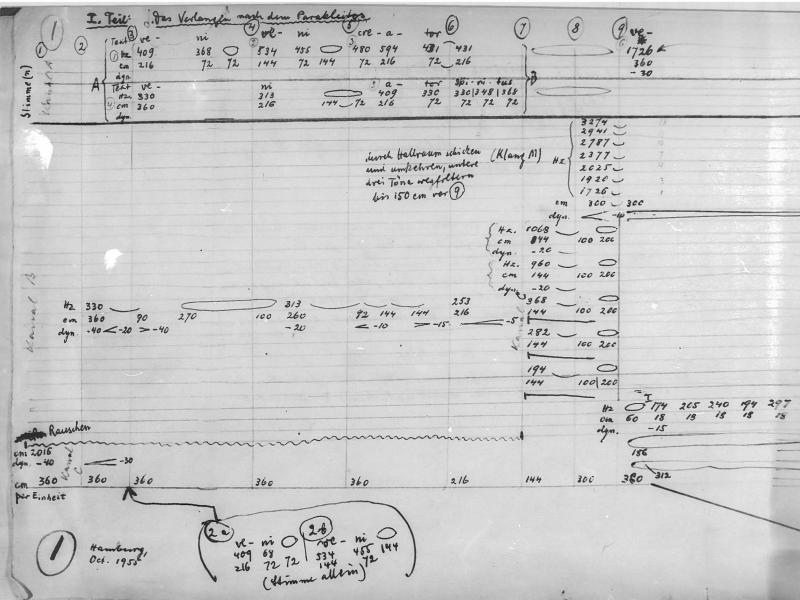 1 I. Teil: Das Verlangen nach dem Parakleitos
1 2 3 4 5 6 7 8 9
Text ve- ni ve- ni cre- a- tor ve-
Hz 409 368 534 455 480 594 431 431 1726
cm 216 72 72 144 72 144 72 216 72 72 360
dyn. -30
Stimme(n)
A
B
Text ve- ni a- tor spi- ri- tus
Hz. 330 313 409 330 330 348 368
cm 360 216 144 72 216 72 72 72 72
dyn.
durch Hallraum schicken
und umkehren, untere
drei Töne wegfiltern
bis 150 cm vor 9
(Klang M) Hz
3274
2941
2787
2377
2025
1920
1726
cm 300 300
dyn. < -10
Hz. 1068
cm 144 100 200
dyn. -20
Hz. 960
cm 144 100 200
dyn. -20
368
144 100 200
282
144 100 200
194
144 100 200
Kanal B
Hz 330 313 253
cm 360 90 270 100 260 92 144 144 216
dyn. -40 < -20 > -40 -20 < -10 > -15 < -5
I
Hz 174 205 240 194 297
cm 60 18 18 18 18 18
dyn. -15
186
312
Rauschen
cm 2016
dyn. -40 < -30
Kanal C
cm 360 360 360 360 360 216 144 300 360
per Einheit
1
Hamburg,
Oct. 1955
2a 2b
ve- ni ve- ni
409 68 534 455 144
216 72 72 144 72
(Stimme allein)